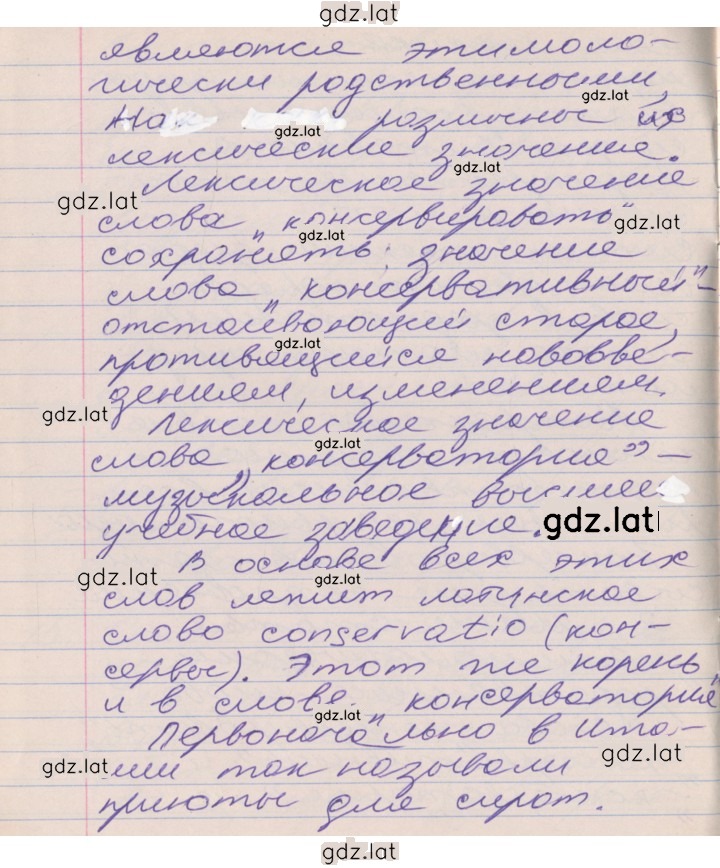 gdz.lat
являются этимоло-
гически родственными,
gdz.lat
На различные их
gdz.lat
лексические значение.
gdz.lat
Лексическое значение
gdz.lat
слова „консервировать"
gdz.lat
gdz.lat
сохранять; значение
слова „консервативный" -
отстаивающий старое,
gdz.lat
противящийся нововве-
дениям, изменениям.
gdz.lat
Лексическое значение
gdz.lat
слова „консерватория" -
музыкальное высшее
учебное заведение.
gdz.lat
В основе всех этих
gdz.lat
gdz.lat
слов лежит латинское
слово conservatio (кон-
сервы). Этот же корень
и в слове „консерватория"
gdz.lat
Первоначально в Ита-
gdz.lat
лии так называли
gdz.lat
приюты для сирот.
gdz.lat